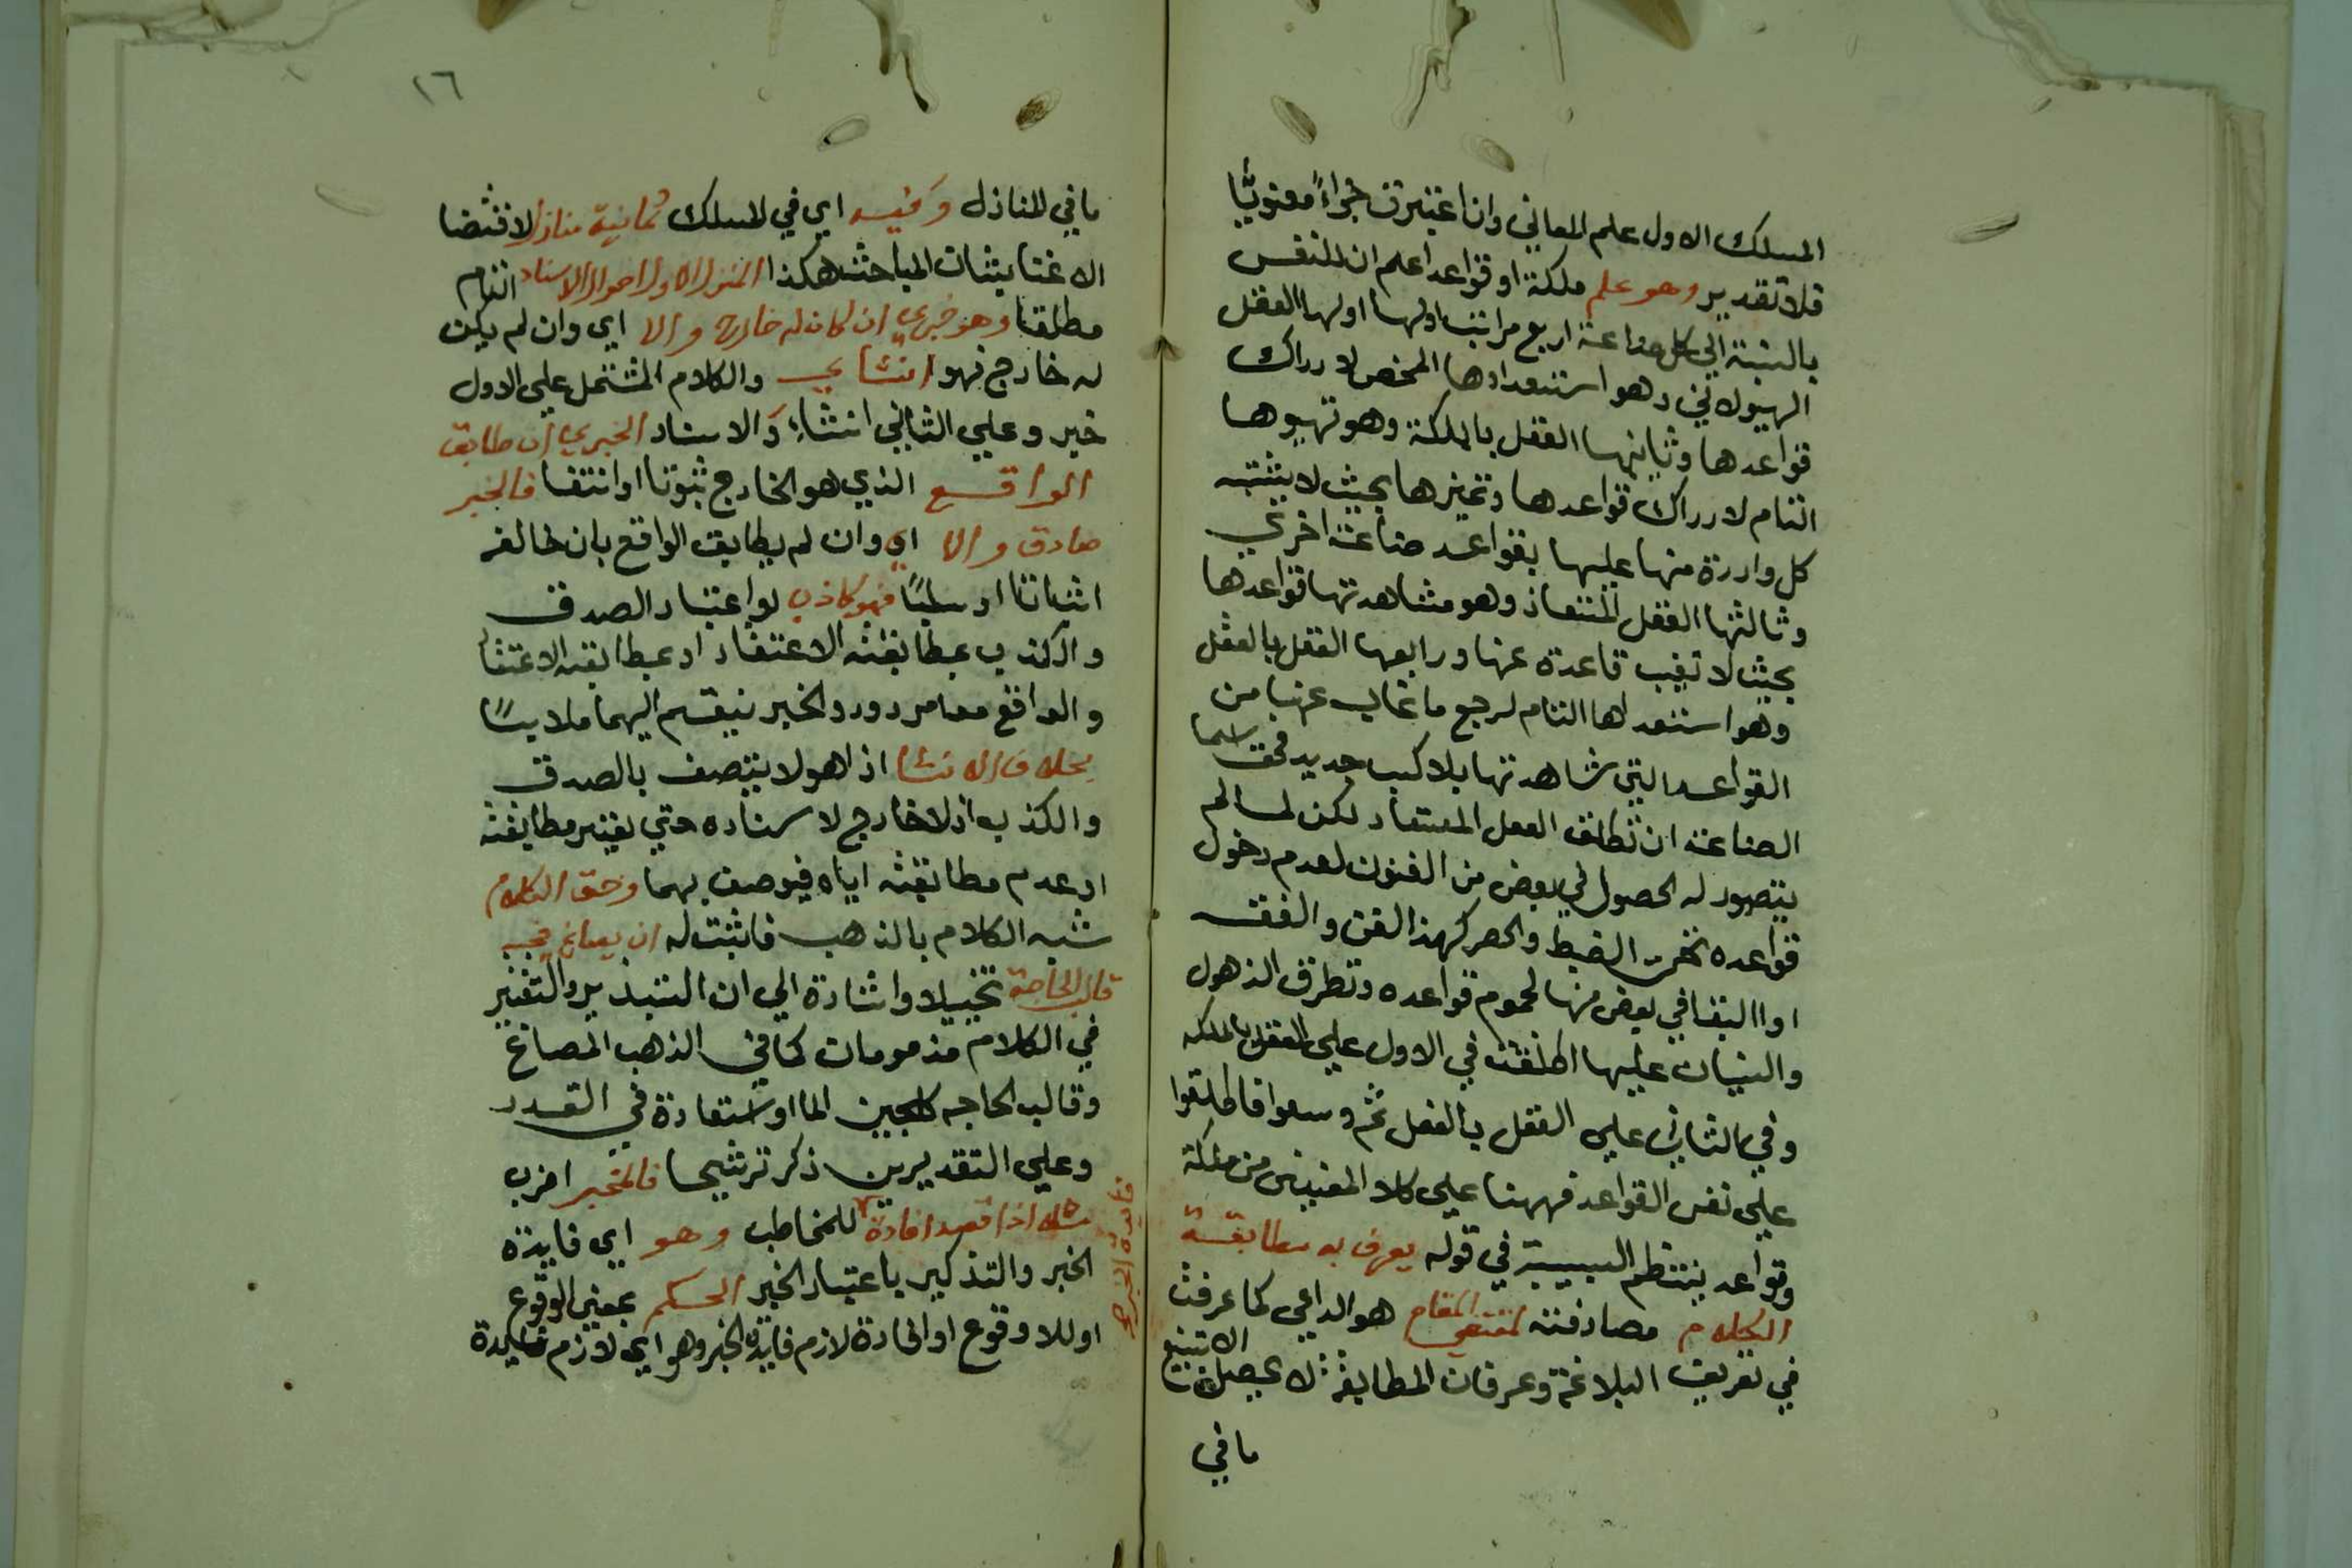 المسلك الاول علم المعاني وان اعتبرت جزاءً معنويًّا
فلا تقدير وهو علم ملكة او قواعد اعلم ان للنفس
بالنسبة الي كل صناعة اربع مراتب اولها العقل
الهيولاني وهو استعدادها المحض لادراك
قواعدها وثانيها العقل بالملكة وهو تهيوها
التام لادراك قواعدها وتميزها بحيث لا يشتبه
كل واردة منها عليها بقواعد صناعة اخري
وثالثها العقل المستفاد وهو مشاهدتها قواعدها
بحيث لا تغيب قاعدة عنها ورابعها العقل بالفعل
وهو استعدادها التام لرجع ما غاب عنها من
القواعد التي شاهدتها بلا كسب جديد فحق اسما
الصناعة ان تطلق العقل المستفاد لكن لما لم
يتصور له الحصول في بعض من الفنون لعدم دخول
قواعده تحت الضبط والحصر كهذا الفن والفقه
او البقا في بعض منها لحموم قواعده وتطرق الذهول
والنسيان عليها اطلقت في الاول علي العقل بالملكه
وفي الثاني علي العقل بالفعل ثم وسعوا فاطلقوا
علي نفس القواعد فههنا علي كلا المعنيين من ملكة
وقواعد ينتظم السببية في قوله يعرف به مطابقة
الكلام مصادفته لمقتضي المقام هو الداعي كما عرفت
في تعريف البلاغة وعرفان المطابقة لا يحصل الا بتتبع
ما في
١٦
ما في المنازل وفيه اي في المسلك ثمانية منازل لاقتضا
الاعتنا بشان المباحث هكذا المنزل الاول احوال الاسناد التام
مطلقا وهو خبري ان كان له خارج والا اي وان لم يكن
له خارج فهو انشاي والكلام المشتمل علي الاول
خبر وعلي الثاني انشاء والاسناد الخبري ان طابق
الواقع الذي هو الخارج ثبوتا او انتفا فالخبر
صادق والا اي وان لم يطابق الواقع بان خالفه
اثباتا او سلبًا فهو كاذب لو اعتبار الصدق
والكذب بمطابقته الاعتقاد او بمطابقته الاعتقا
والواقع معا مردود والخبر ينقسم اليهما ملابسًا
بخلاف الانشا اذ هو لا يتصف بالصدق
والكذب اذ لا خارج لاسناده حتي يعتبر مطابقته
او عدم مطابقته اياه فيوصف بهما وحق الكلام
شبه الكلام بالذهب فاثبت له ان يصاغ بحسب
قالب الحاجة تخييلا واشارة الي ان التبذير والتقتير
في الكلام مذمومان كما في الذهب المصاغ
وقالب الحاجه كلجين الما او استعارة في القدر
وعلي التقديرين ذكر ترشيحا فالمخبر اضرب
مثله اذا قصد افادة للمخاطب وهو اي فايدة
الخبر والتذكير باعتبار الخبر الحكم بمعني الوقوع
او اللا وقوع او افادة لازم فايدة الخبر وهو اي لازم فايدة
فايدة الخبر